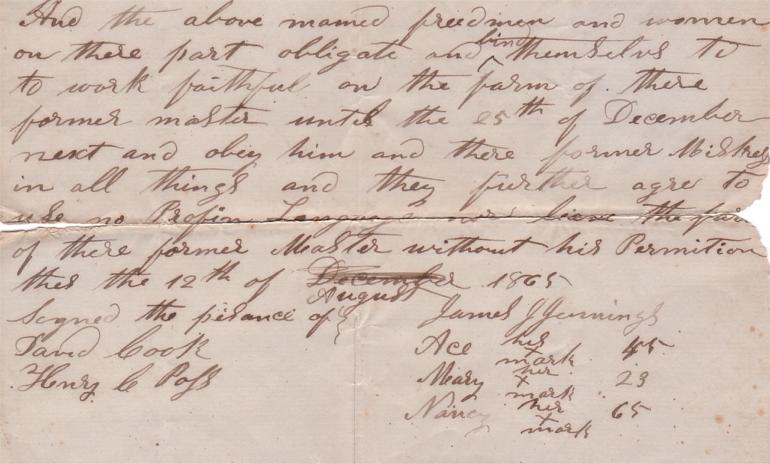 And the above named freedmen and women
on there part obligate and bind themselvs to
to work faithful on the farm of there
former master until the 25th of December
next and obey him and there former Mistress
in all things and they further agre to
use no Profin Language nor lieve the farm
of there former Master without his Permition
this the 12th of December August 1865
Sogned the pesance of
James J Jennings
David Cook
Henry C Poss
Ace his mark 45
Meary her x mark 23
Nancy her x mark 65